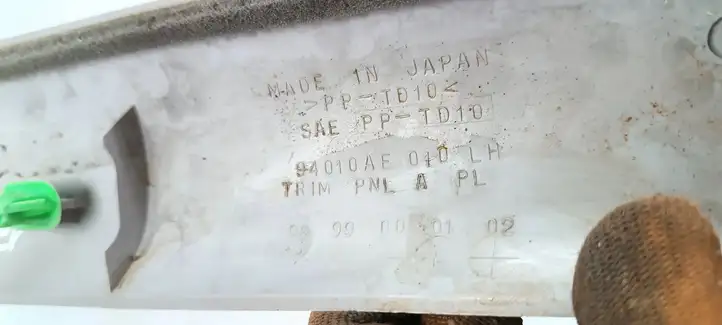 MADE IN JAPAN
>PP-TD10<
SAE PP-TD10
94010AE 010 LH
TRIM PNL A PL
99 00 01 02